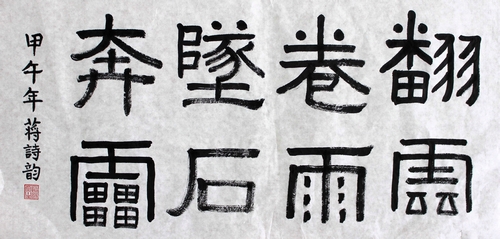 翻雲
卷雨
墜石
奔靁
甲午年蔣詩韵